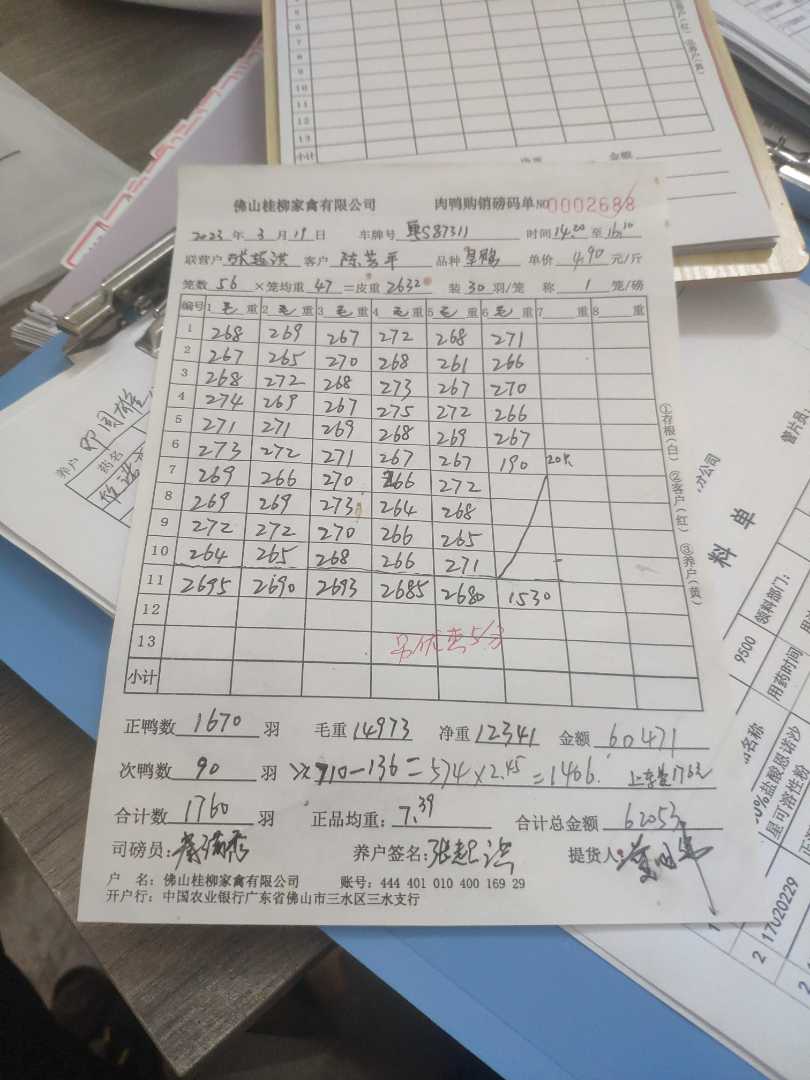 5
6
7
8
9
10
11
12
13
小计
金额
佛山桂柳家禽有限公司 肉鸭购销磅码单 NO 0002688
2023 年 3 月 19 日 车牌号 粤S87311 时间 14:20 至 16:10
联营户 张超洪 客户 陈芳平 品种 单价 4.90 元/斤
笼数 56 ×笼均重 47 =皮重 2632 装 30 羽/笼 称 1 笼/磅
编号 1 毛 重 2 毛 重 3 毛 重 4 毛 重 5 毛 重 6 毛 重 7 重 8 重
1 268 269 267 272 268 271
2 267 265 270 268 261 266
3 268 272 268 273 267 270
4 274 269 267 275 272 266
5 271 271 269 268 269 267
6 273 272 271 267 267 190 20只
7 269 266 270 266 272
8 269 269 273 264 268
9 272 272 270 266 265
10 264 265 268 266 271
11 2695 2690 2693 2685 2680 1530
12
13
小计
①存根(白) ②客户(红) ③养户(黄)
正鸭数 1670 羽 毛重 14973 净重 12341 金额 60471
次鸭数 90 羽 710-136=574×2.45=1406. 176元
合计数 1760 羽 正品均重: 7.39 合计总金额 62053
司磅员: 养户签名: 张超洪 提货人
户 名: 佛山桂柳家禽有限公司 账号: 444 401 010 400 169 29
开户行: 中国农业银行广东省佛山市三水区三水支行
养户 邓周雄
药名
分公司
管片员
料 单
领料部门:
9500
用药时间
品名称
0%盐酸恩诺沙
星可溶性粉
17020229
2